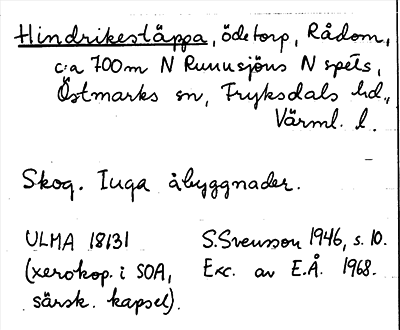 Hindrikestäppa, ödetorp, Rådom,
c:a 700 m N Runnsjöns N spets,
Östmarks sn, Fryksdals hd.,
Värml. l.
Skog. Inga åbyggnader.
ULMA 18131 S. Svensson 1946, s. 10.
(xerokop. i SOA, Exc. av E.Å. 1968.
särsk. kapsel).